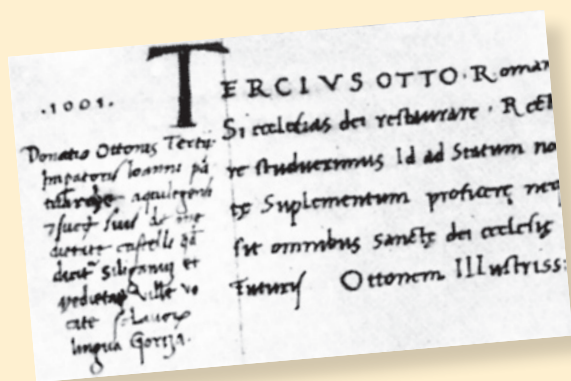 .1001.
Donatio Ottonis Tertii
Impatoris Ioanni pa
aquilegensi
suis de me
dietate castelli qd
dicit Siliganum et
Ville vo
cate
lingua Goriza.
TERCIVS OTTO. Roman
Si ecclesias dei restaurare.
re studuerimus Id ad Statum no
tę Suplementum proficere neq
sit omnibus sanctę dei ecclesię
Futuris Ottonem IIIustriss: